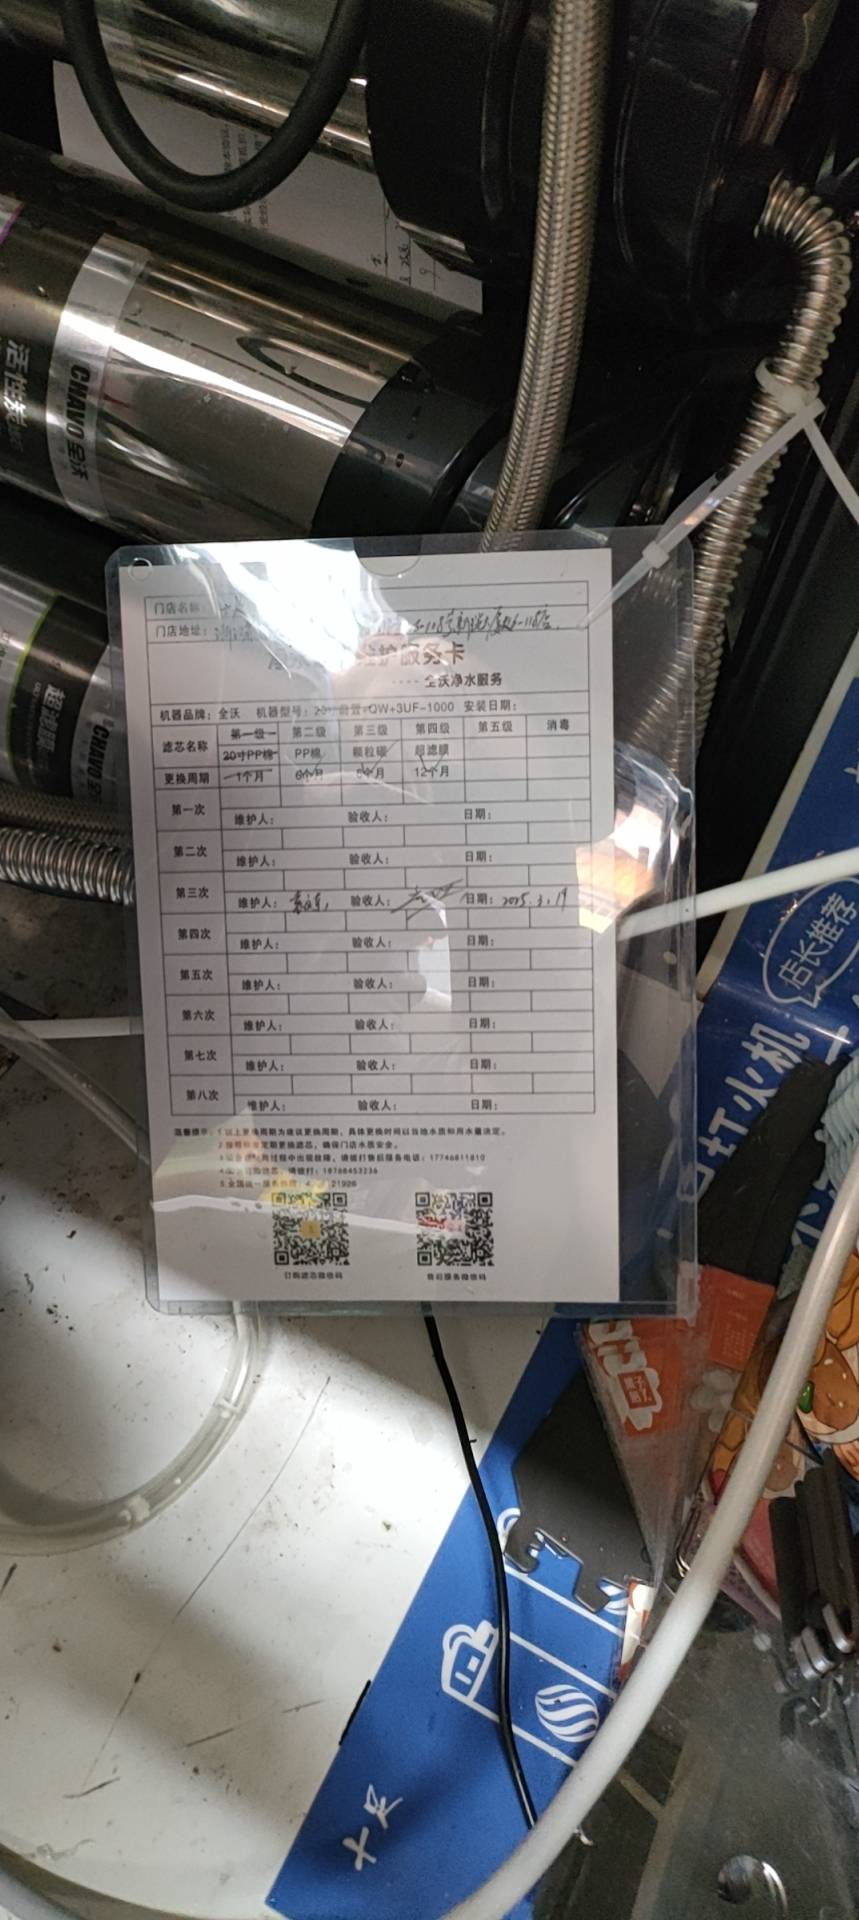 活性炭
CHAVO 全沃
超滤膜
CHAVO 全
门店名称：
门店地址：
维护服务卡
---- 全沃净水服务
机器品牌：全沃 机器型号：QW+3UF-1000 安装日期：
滤芯名称 第一级 第二级 第三级 第四级 第五级 消毒
20寸PP棉 PP棉 颗粒碳 超滤膜
更换周期 1个月 6个月 6个月 12个月
第一次
维护人： 验收人： 日期：
第二次
维护人： 验收人： 日期：
第三次
维护人： 验收人： 日期：2025.3.19
第四次
维护人： 验收人： 日期：
第五次
维护人： 验收人： 日期：
第六次
维护人： 验收人： 日期：
第七次
维护人： 验收人： 日期：
第八次
维护人： 验收人： 日期：
温馨提示：1.以上更换周期为建议更换周期，具体更换时间以当地水质和用水量决定。
定期更换滤芯，确保门店水质安全。
过程中出现故障，请拨打售后服务电话：17746811810
滤芯，请拨打：18768453236
5.全国统一服务热线：
订购滤芯微信码 售后服务微信码
店长推荐
打火机
十足